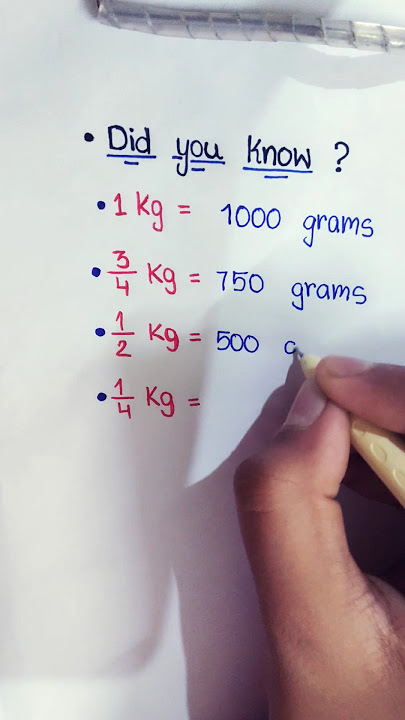 • Did you Know ?
• 1 Kg = 1000 grams
• 3/4 Kg = 750 grams
• 1/2 Kg = 500
• 1/4 Kg =